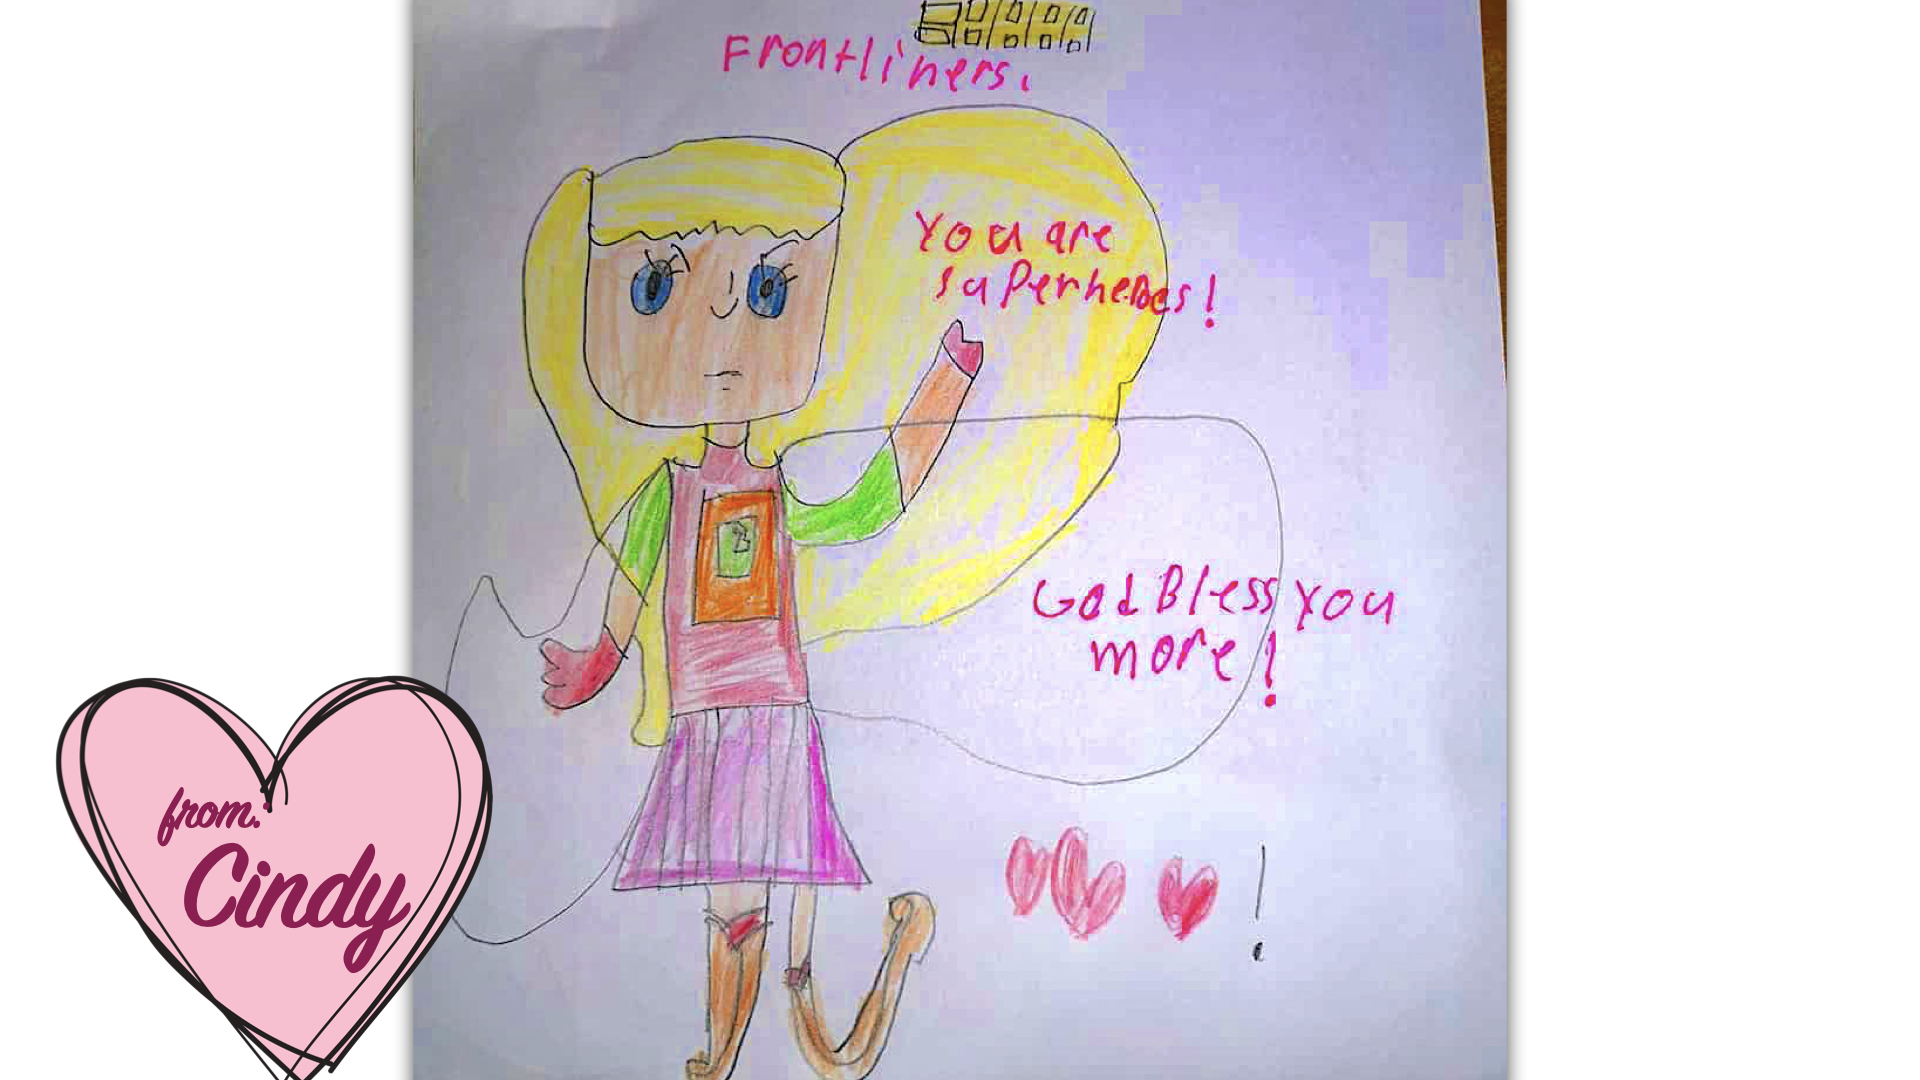 Frontliners.
You are
superheroes!
God Bless you
more!
!
from:
Cindy